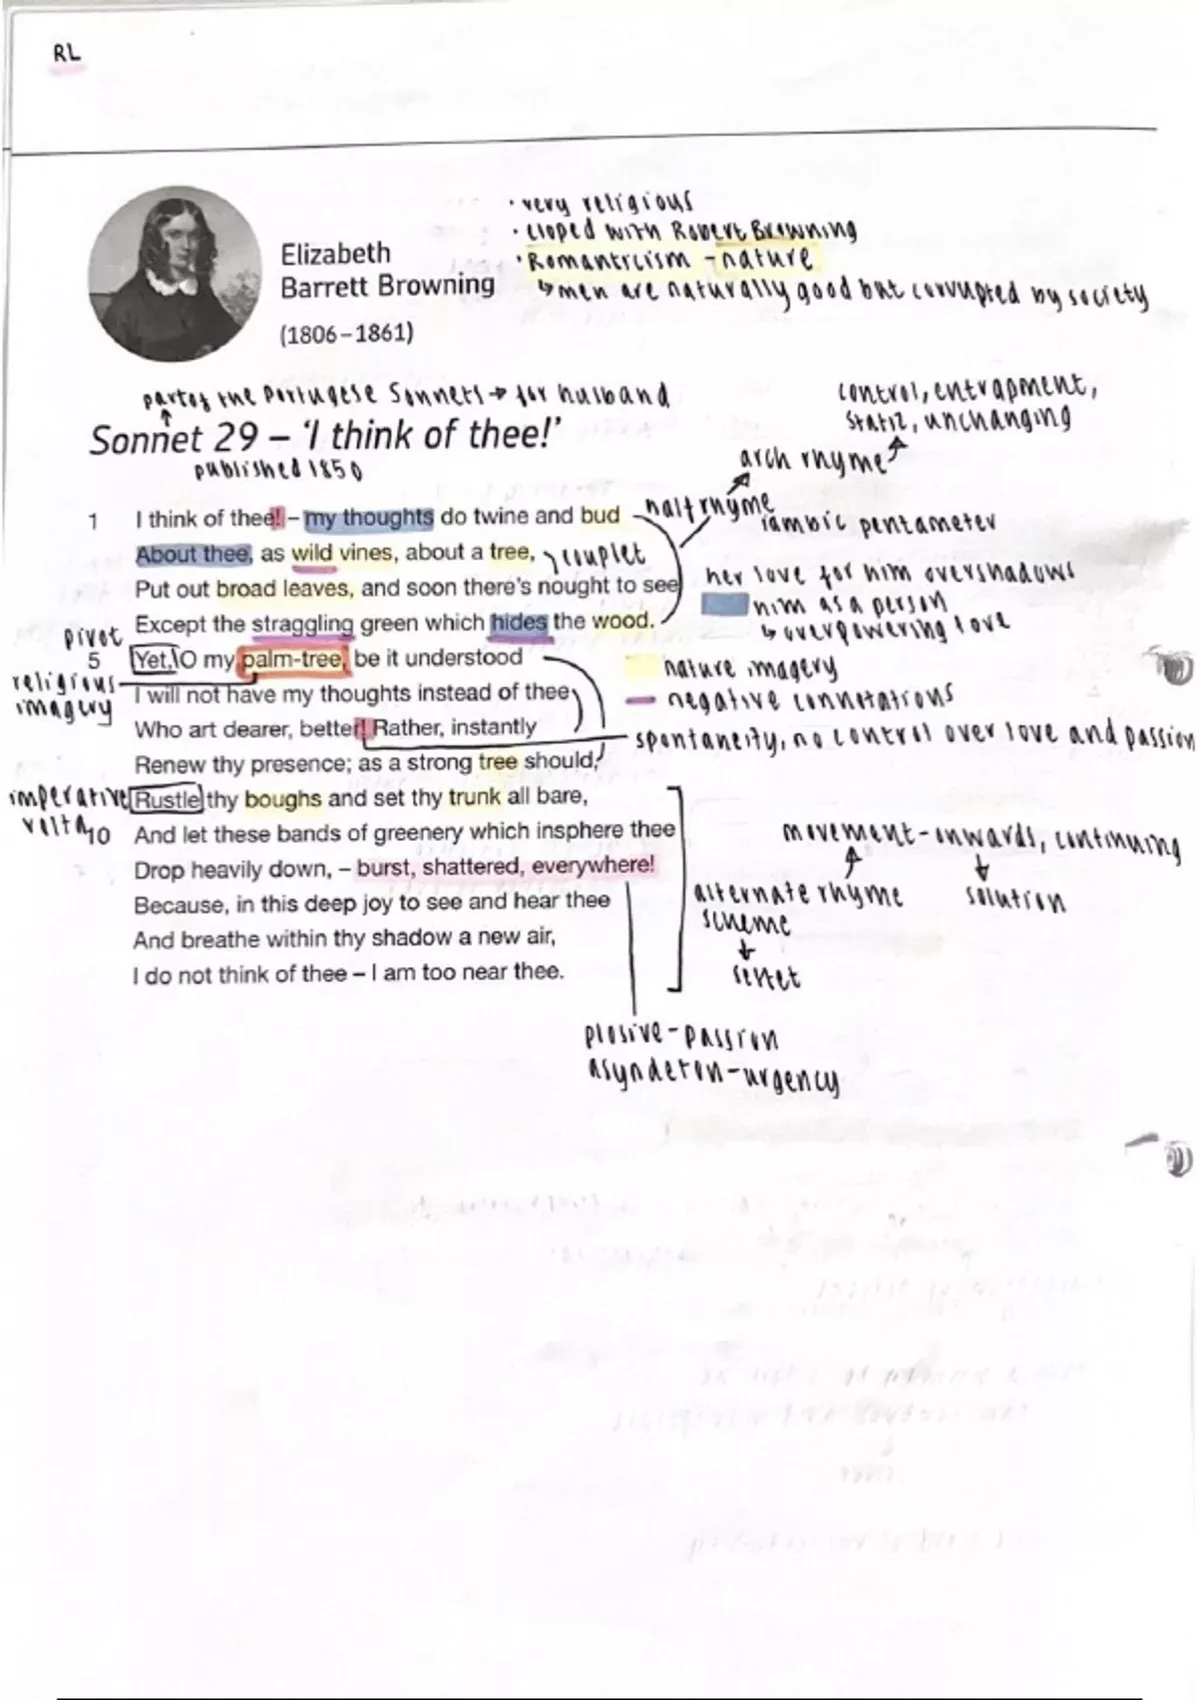 RL
· very religious
· eloped with Robert Browning
· Romanticism - nature
↳ men are naturally good but corrupted by society
Elizabeth
Barrett Browning
(1806–1861)
part of the Portugese Sonnets → for husband
Sonnet 29 – 'I think of thee!'
published 1850
control, entrapment,
static, unchanging
arch rhyme
half rhyme
iambic pentameter
1 I think of thee! – my thoughts do twine and bud
About thee, as wild vines, about a tree,
couplet
Put out broad leaves, and soon there's nought to see
Except the straggling green which hides the wood.
her love for him overshadows
him as a person
↳ overpowering love
pivot
5 Yet, O my palm-tree, be it understood
nature imagery
religious
imagery
I will not have my thoughts instead of thee
negative connotations
Who art dearer, better! Rather, instantly
spontaneity, no control over love and passion
Renew thy presence; as a strong tree should,
imperative
volta
Rustle thy boughs and set thy trunk all bare,
10 And let these bands of greenery which insphere thee
Drop heavily down, – burst, shattered, everywhere!
Because, in this deep joy to see and hear thee
And breathe within thy shadow a new air,
I do not think of thee – I am too near thee.
movement - onwards, continuing
solution
alternate rhyme
scheme
sestet
plosive - passion
asyndeton - urgency